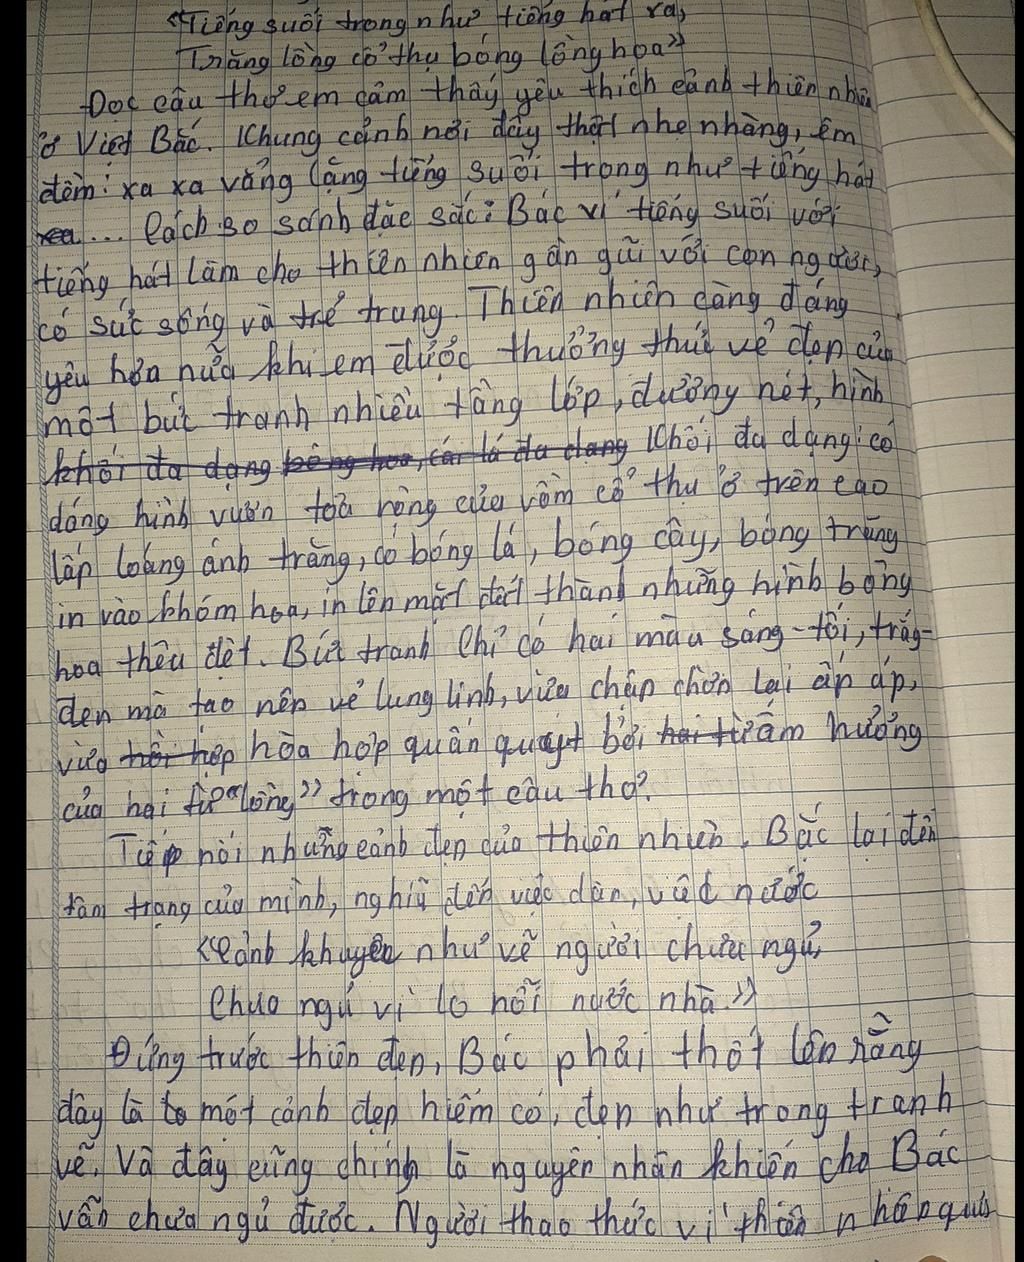 “Tiếng suối trong như tiếng hát xa,
Trăng lồng cổ thụ bóng lồng hoa”
Đọc câu thơ em cảm thấy yêu thích cảnh thiên nhiên
ở Việt Bắc. Khung cảnh nơi đây thật nhẹ nhàng, êm
đềm: xa xa vẳng lặng tiếng suối trong như tiếng hát
xa... Cách so sánh đặc sắc: Bác ví tiếng suối với
tiếng hát làm cho thiên nhiên gần gũi với con người,
có sức sống và trẻ trung. Thiên nhiên càng đáng
yêu hơn nữa khi em được thưởng thức vẻ đẹp của
một bức tranh nhiều tầng lớp, đường nét, hình
khối đa dạng bóng hoa, cái lá đa dạng Khối đa dạng: có
dáng hình vươn toả rộng của vòm cổ thụ ở trên cao
lấp loáng ánh trăng, có bóng lá, bóng cây, bóng trăng
in vào khóm hoa, in lên mặt đất thành những hình bông
hoa thêu dệt. Bức tranh chỉ có hai màu sáng-tối, trắg-
đen mà tạo nên vẻ lung linh, vừa chập chờn lại ấm áp,
vừa hòa hợp quấn quýt bởi hai từ âm hưởng
của hai từ “lồng” trong một câu thơ.
Tiếp nối những cảnh đẹp của thiên nhiên, Bác lại đến
tâm trạng của mình, nghĩ đến việc dân, việc nước
“Cảnh khuya như vẽ người chưa ngủ,
Chưa ngủ vì lo nỗi nước nhà.”
Đứng trước thiên đẹp, Bác phải thốt lên rằng
đây là một cảnh đẹp hiếm có, đẹp như trong tranh
vẽ. Và đây cũng chính là nguyên nhân khiến cho Bác
vẫn chưa ngủ được. Người thao thức vì thiên nhiên quá